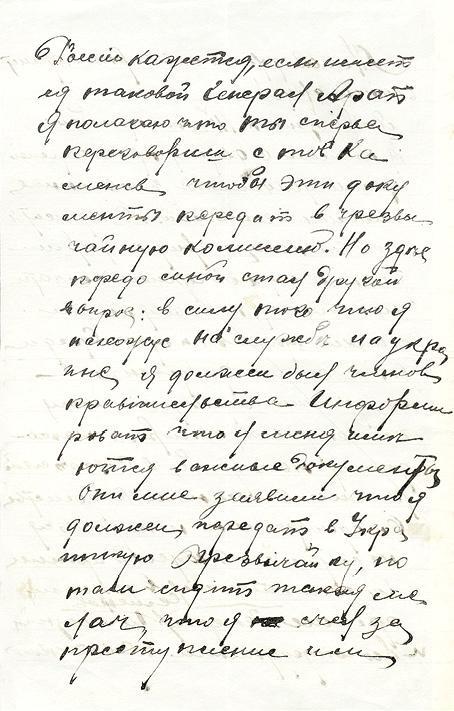 в Россию кажется, если имеет
ся таковой Генерал
Я полагаю что ты сперва
переговоришь с тов Ка
менев чтобы эти доку
менты передать в чрезвы
чайную комиссию. Но здесь
передо мной стал другой
вопрос: в силу того что я
нахожус на службе на укра
ине, я должен был членов
правительства информи
ровать что у меня име
ются важные документы
Они мне заявили что я
должен передать в Укра
инскую Чрезвычайку, но
там сидит такая ме
лочь, что я счел за
преступление им